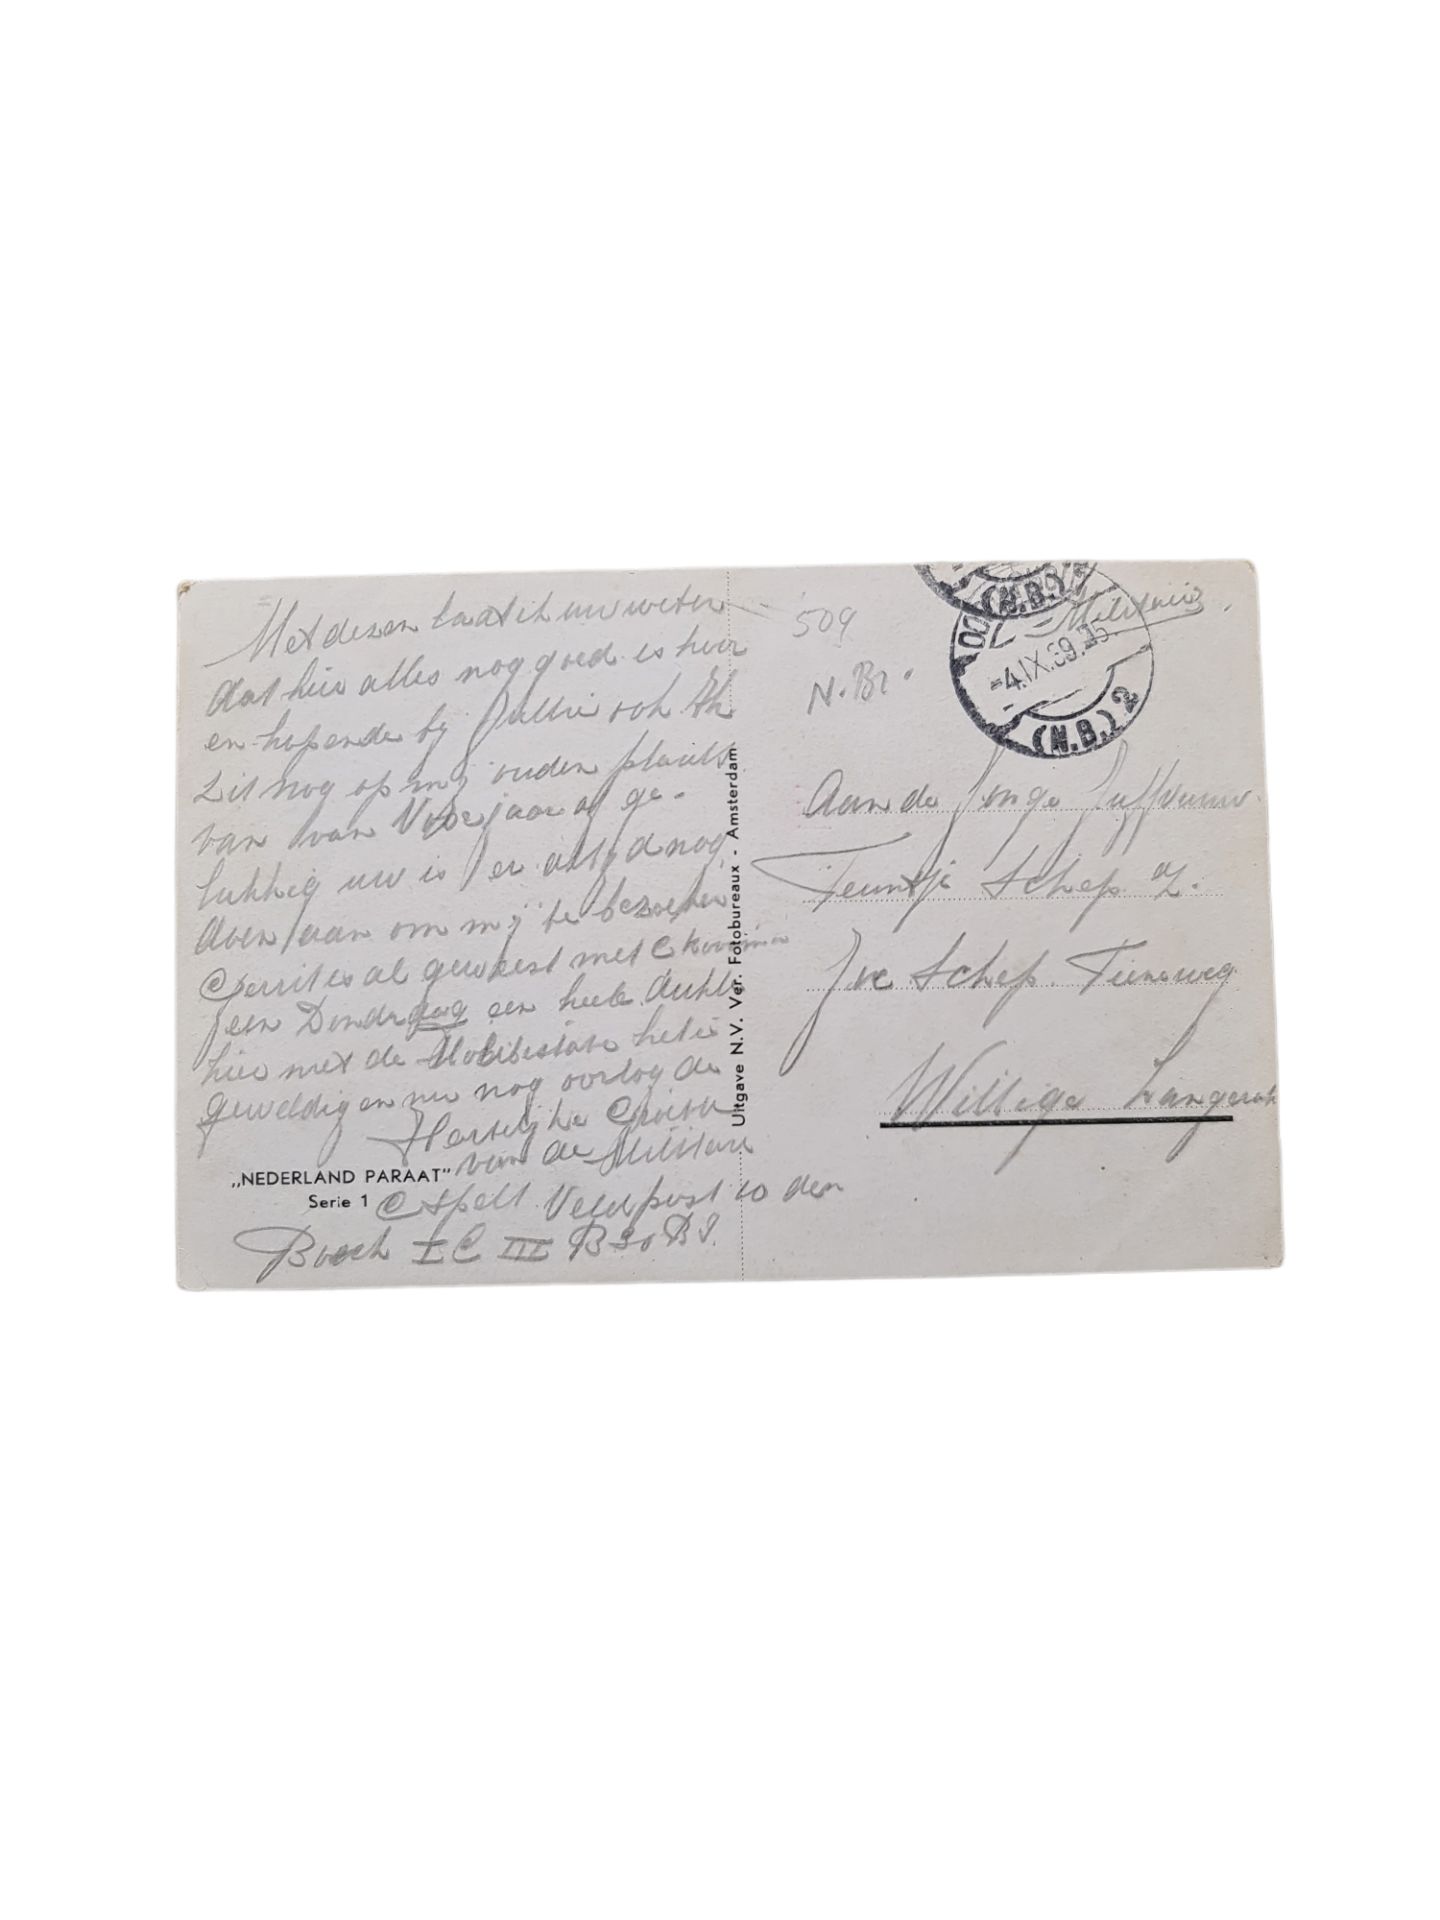 Met dezen laat ik uw weten
dat hier alles nog goed is hoor
en hopende bij Jullie ook Ik
zit nog op mij ouden plaats
van van Voorjaar af ge-
lukkig uw is er altijd nog
aan om mij te bezoeken
Gerrit is al geweest met C
een Donderdag een heele drukte
hier met de Mobilisatie het is
geweldig en nu nog oorlog de
Hartelijke Groeten
van de Militair
„NEDERLAND PARAAT”
Serie 1
C Veldpost 10 den
Bosch I C III B 30 R I.
Uitgave N.V. Ver. Fotobureaux - Amsterdam
509
N.Br.
Militair.
(N.B.)
-4.IX.39.
(N.B.) 2
Aan de Jonge Juffvrouw
Teuntje Schep Z.
Schep. Tiendweg
Willige Langerak